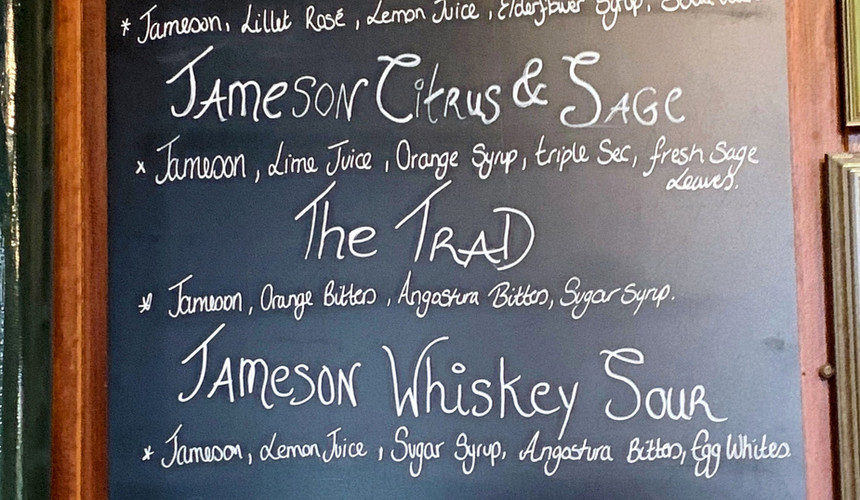 * Jameson, Lillet Rosé, Lemon Juice, Elderflower Syrup,
JAMESON Citrus & SAGE
x Jameson, Lime Juice, Orange Syrup, triple Sec, fresh Sage
Leaves.
The TRAD
* Jameson, Orange Bitters, Angostura Bitters, Sugar Syrup.
JAMESON Whiskey Sour
* Jameson, Lemon Juice, Sugar Syrup, Angostura Bitters, Egg Whites.